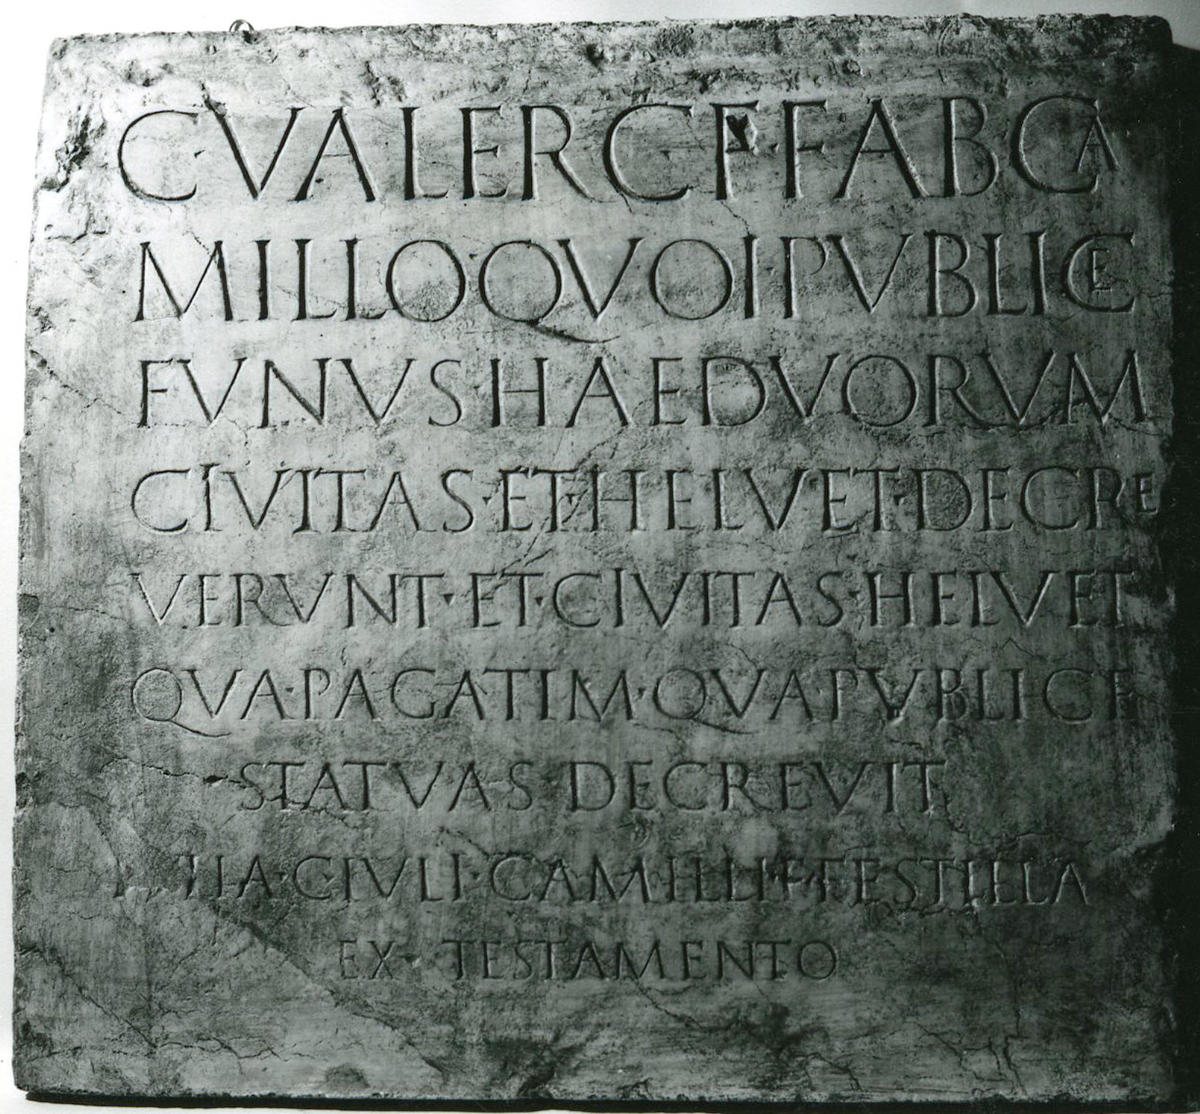 C·VALER·C·F·FAB·CA
MILLO·QVOI·PVBLICE
FVNVS HAEDVORVM
CIVITAS·ET·HELVET·DECRE
VERVNT·ET·CIVITAS·HELVET
QVA·PAGATIM·QVA·PVBLICE
STATVAS DECREVIT
IVLIA·C·IVLI·CAMILLI·F·FESTILLA
EX·TESTAMENTO